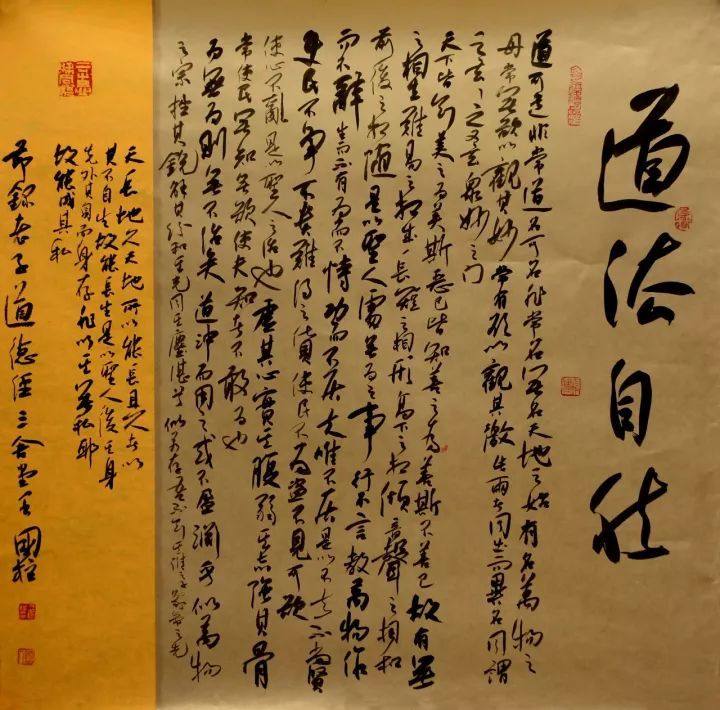 道法自然
道可道非常道名可名非常名無名天地之始有名萬物之
母常無欲以觀其妙常有欲以觀其徼此兩者同出而異名同謂
之玄〻之又玄眾妙之門
天下皆知美之為美斯惡已皆知善之為善斯不善已故有無
之相生難易之相成長短之相形高下之相傾音聲之相和
前後之相隨是以聖人處無為之事行不言教萬物作
而不辭生而不有為而不恃功而不居夫唯不居是以不去不尚賢
使民不爭不貴難得之貨使民不為盜不見可欲
使心不亂是以聖人之治也虛其心實其腹弱其志強其骨
常使民無知無欲使夫知者不敢為也
為無為則無不治矣道沖而用之或不盈淵乎似萬物
之宗挫其銳解其紛和其光同其塵湛兮似或存吾不知其誰之子象帝之先
天長地久天地所以能長且久者以
其不自生故能長生是以聖人後其身
先外其身而身存非以其無私耶
故能成其私
節錄老子道德經三舍堂主國柱